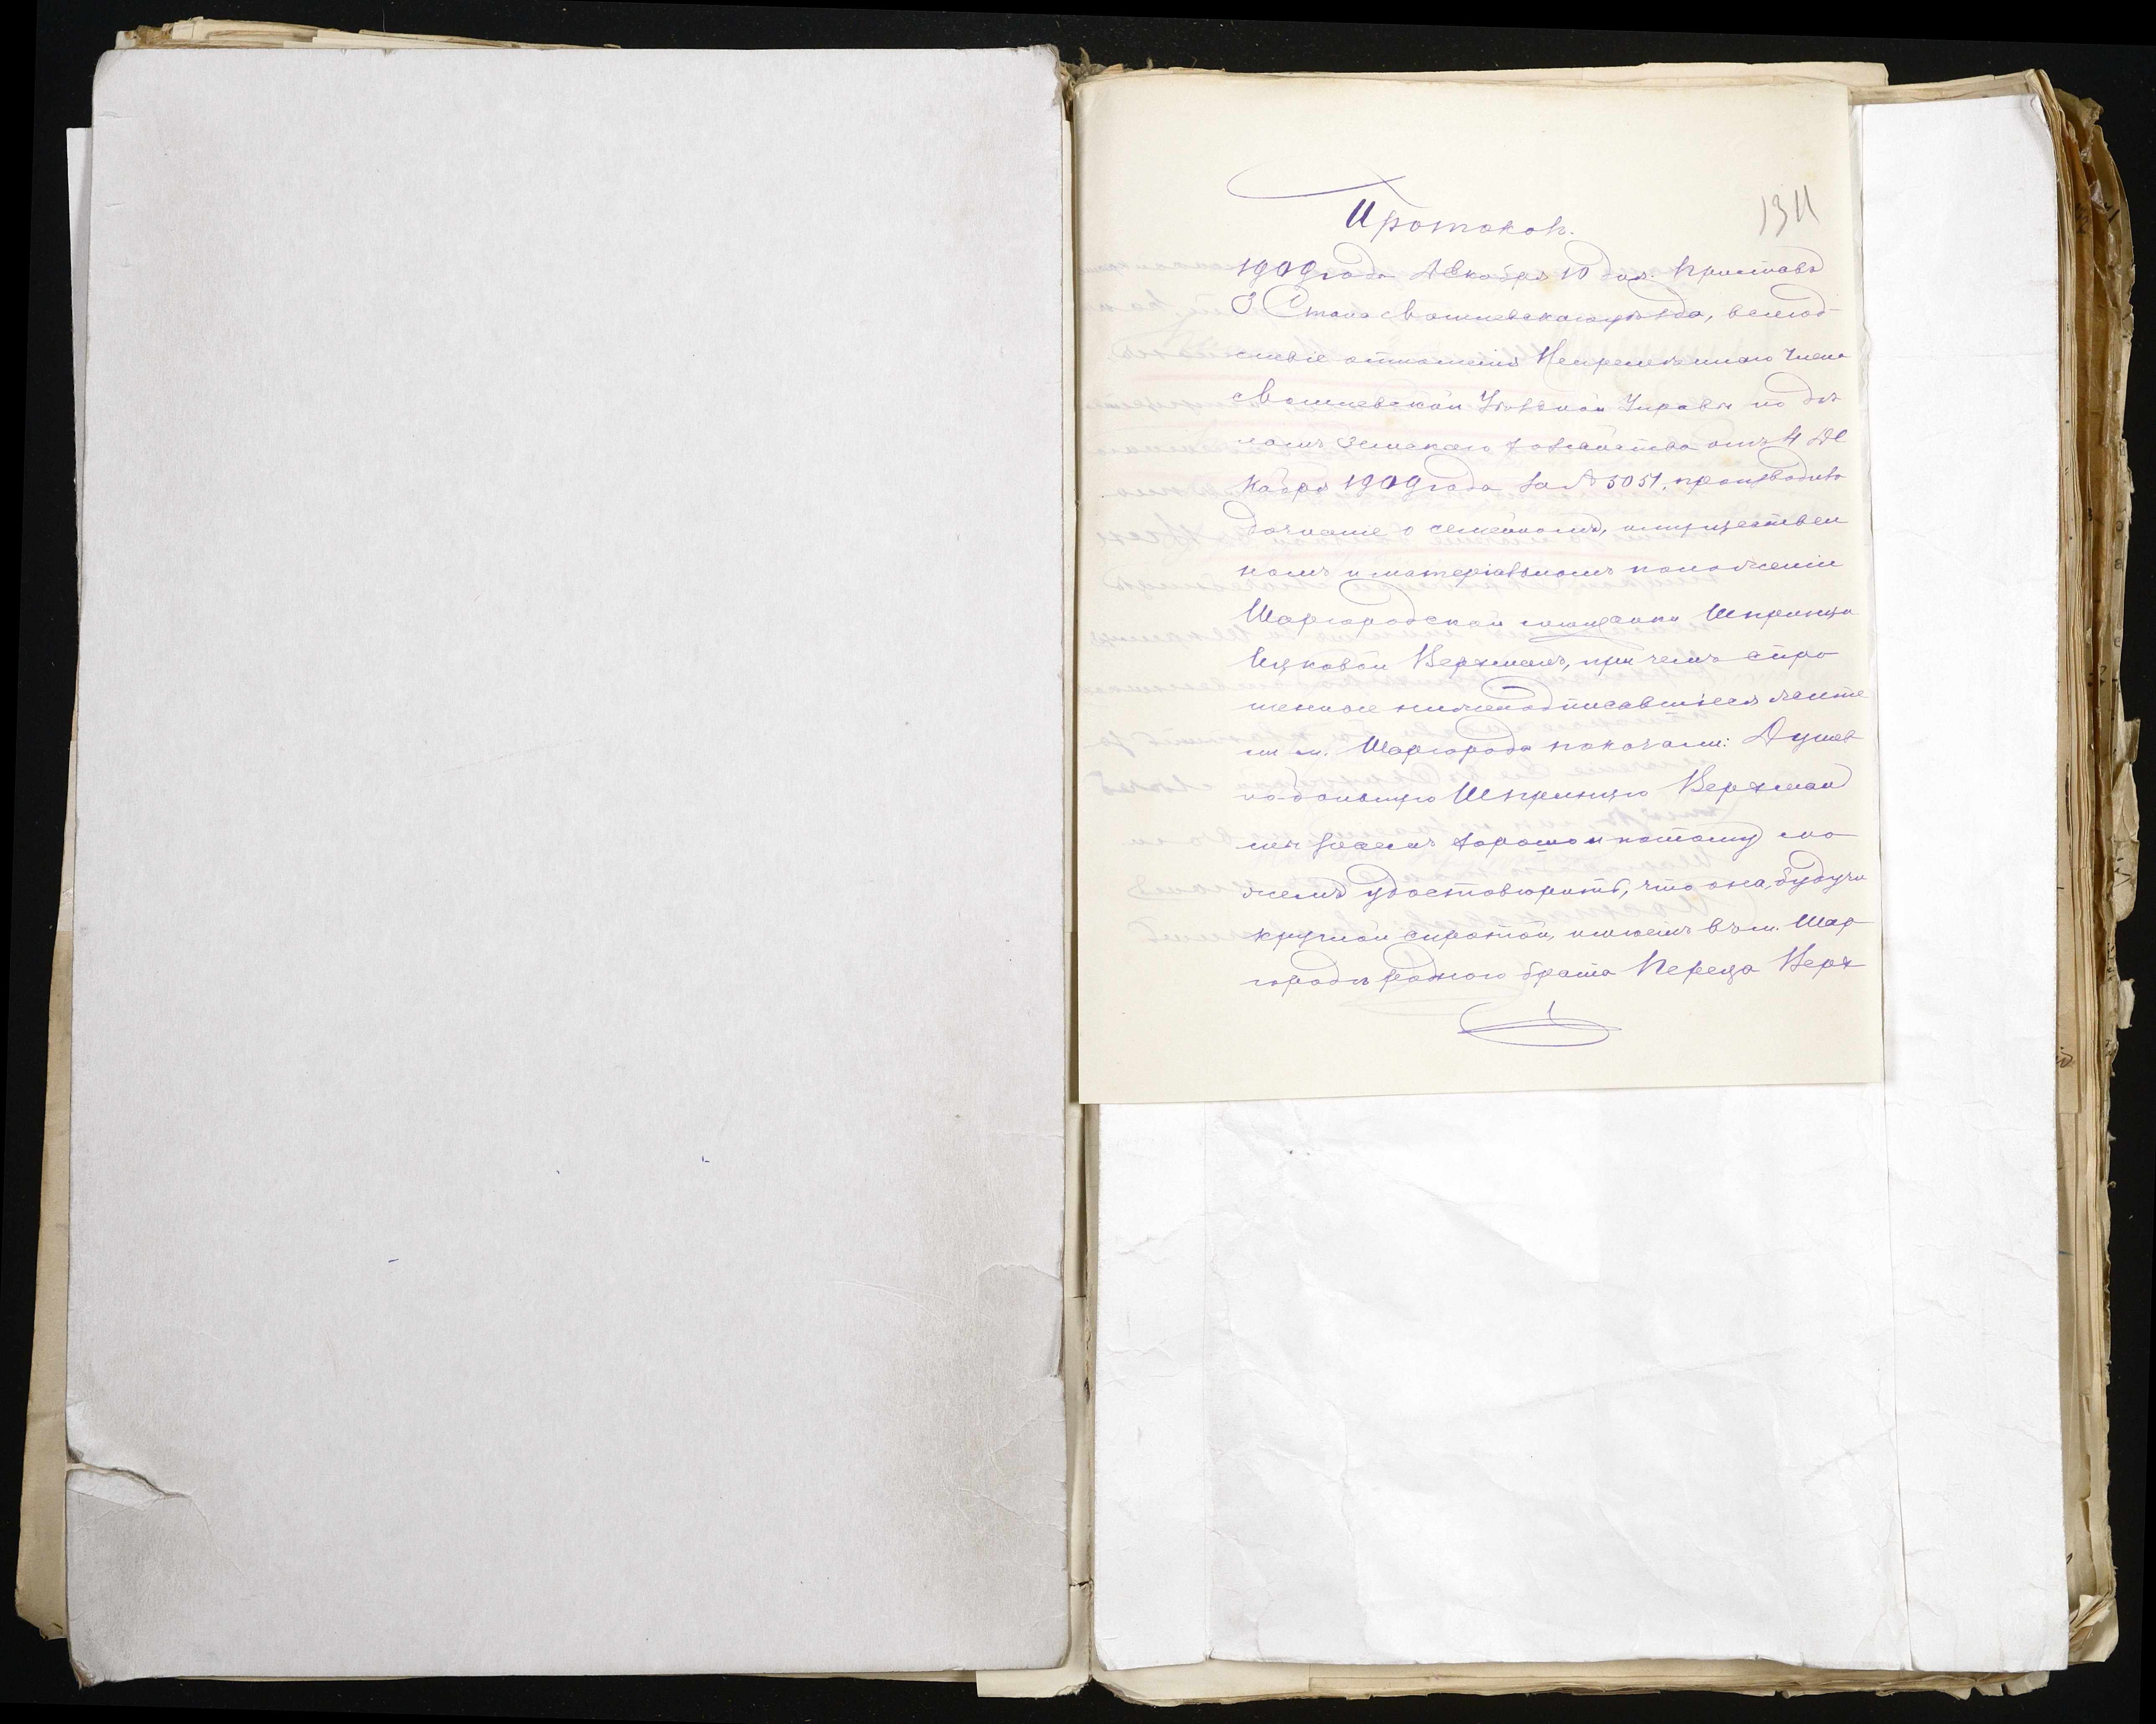 1311
Протоколъ.
1909 года Декабря 10 дня. Приставъ
3 Стана Могилевскаго уѣзда, вслѣд-
ствіе отношенія Непремѣннаго Члена
Могилевской Уѣздной Управы по дѣ
ламъ Земскаго Хозяйства отъ 4 Де
кабря 1909 года за № 5051, производилъ
дознаніе о семейномъ, имуществен
номъ и матеріальномъ положеніи
Шаргородской мѣщанки Шпринцы
Ицковой Верхманъ, при чемъ спро
шенные нижеподписавшіеся жите
ли м. Шаргорода показали: Душев
но-больную Шпринцу Верхман
мы знаемъ хорошо и потому мо
жемъ удостовѣрить, что она, будучи
круглой сиротой, имѣетъ въ м. Шар
городѣ роднаго брата Переца Верх